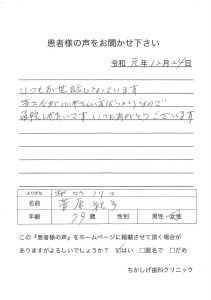 患者様の声をお聞かせ下さい
令和 元年 12月 24日
いつもお世話になっています
皆さんが心やさしい方ばっかりなので
最後しかないです いつもありがとうございます
ふりがな
名前 菅原 紀子
年齢 79歳 性別 男性・女性
この『患者様の声』をホームページに掲載させて頂く場合が
ありますがよろしいでしょうか? はい □匿名で □だめ
ちかしげ歯科クリニック